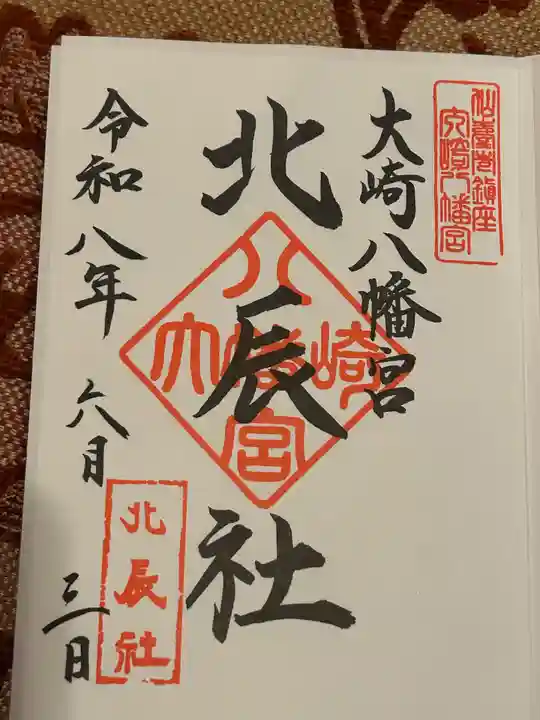 仙臺市鎮座
大崎八幡宮
大崎八幡宮
北辰社
八
大崎
幡
宮
令和八年 六月 三日
北辰社